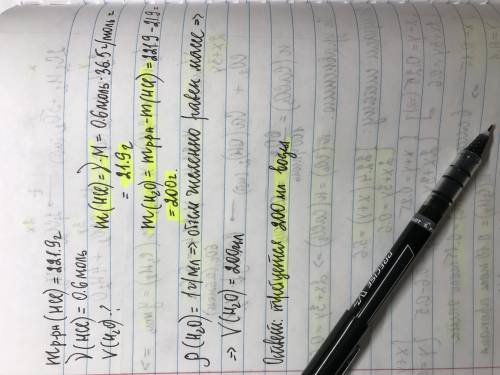 m р-ра (HCl) = 221.9г
ν(HCl) = 0.6 моль
V(H₂O)-?
m(HCl) = ν·M = 0.6 моль · 36.5 г/моль =
= 21.9г
m(H₂O) = m р-ра - m(HCl) = 221.9 - 21.9 =
= 200г.
ρ(H₂O) = 1г/мл => объем численно равен массе =>
=> V(H₂O) = 200мл
Ответ: требуется 200 мл воды